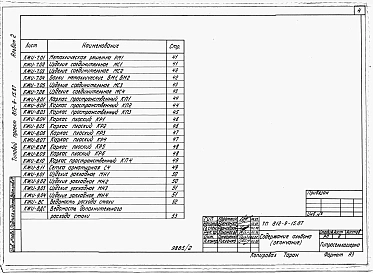 4
Альбом 2
Типовой проект 810-9-15.87
Лист Наименование Стр.
КЖИ-701 Металлическая решетка РМ1 41
КЖИ-702 Изделие соединительное МС1 41
КЖИ-703 Изделие соединительное МС2 42
КЖИ-704 Балки металлические БМ1, БМ2 42
КЖИ-705 Изделие соединительное МС3 43
КЖИ-706 Изделие соединительное МС4 43
КЖИ-801 Каркас пространственный КП1 44
КЖИ-802 Каркас пространственный КП2 44
КЖИ-803 Каркас пространственный КП3 45
КЖИ-804 Каркас плоский КР1 46
КЖИ-805 Каркас плоский КР2 46
КЖИ-806 Каркас плоский КР3 47
КЖИ-807 Каркас плоский КР4 47
КЖИ-808 Каркас плоский КР5 48
КЖИ-809 Каркас плоский КР6 48
КЖИ-810 Каркас пространственный КП4 49
КЖИ-811 Сетка арматурная С4 49
КЖИ-901 Изделие закладное МН1 50
КЖИ-902 Изделие закладное МН2 50
КЖИ-903 Изделие закладное МН3 51
КЖИ-904 Изделие закладное МН4 51
КЖИ-ВС Ведомость расхода стали 52
КЖИ-ВД1 Ведомость дополнительного
расхода стали 53
Привязан
Инв.№
ТП 810-9-15.87
Содержание альбома
(окончание)
9885/2
Копировал Таран Формат А3